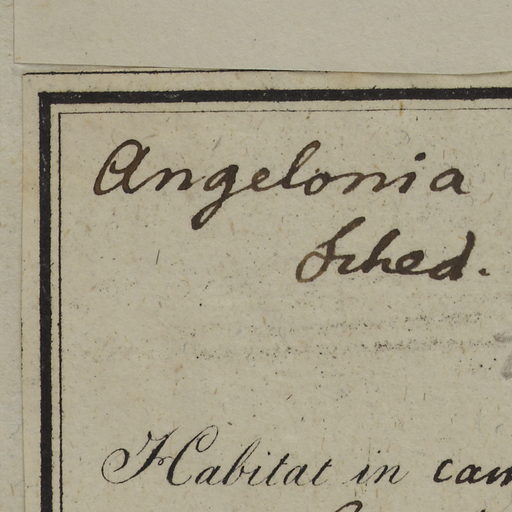 Angelonia
Sched.
Habitat in cam